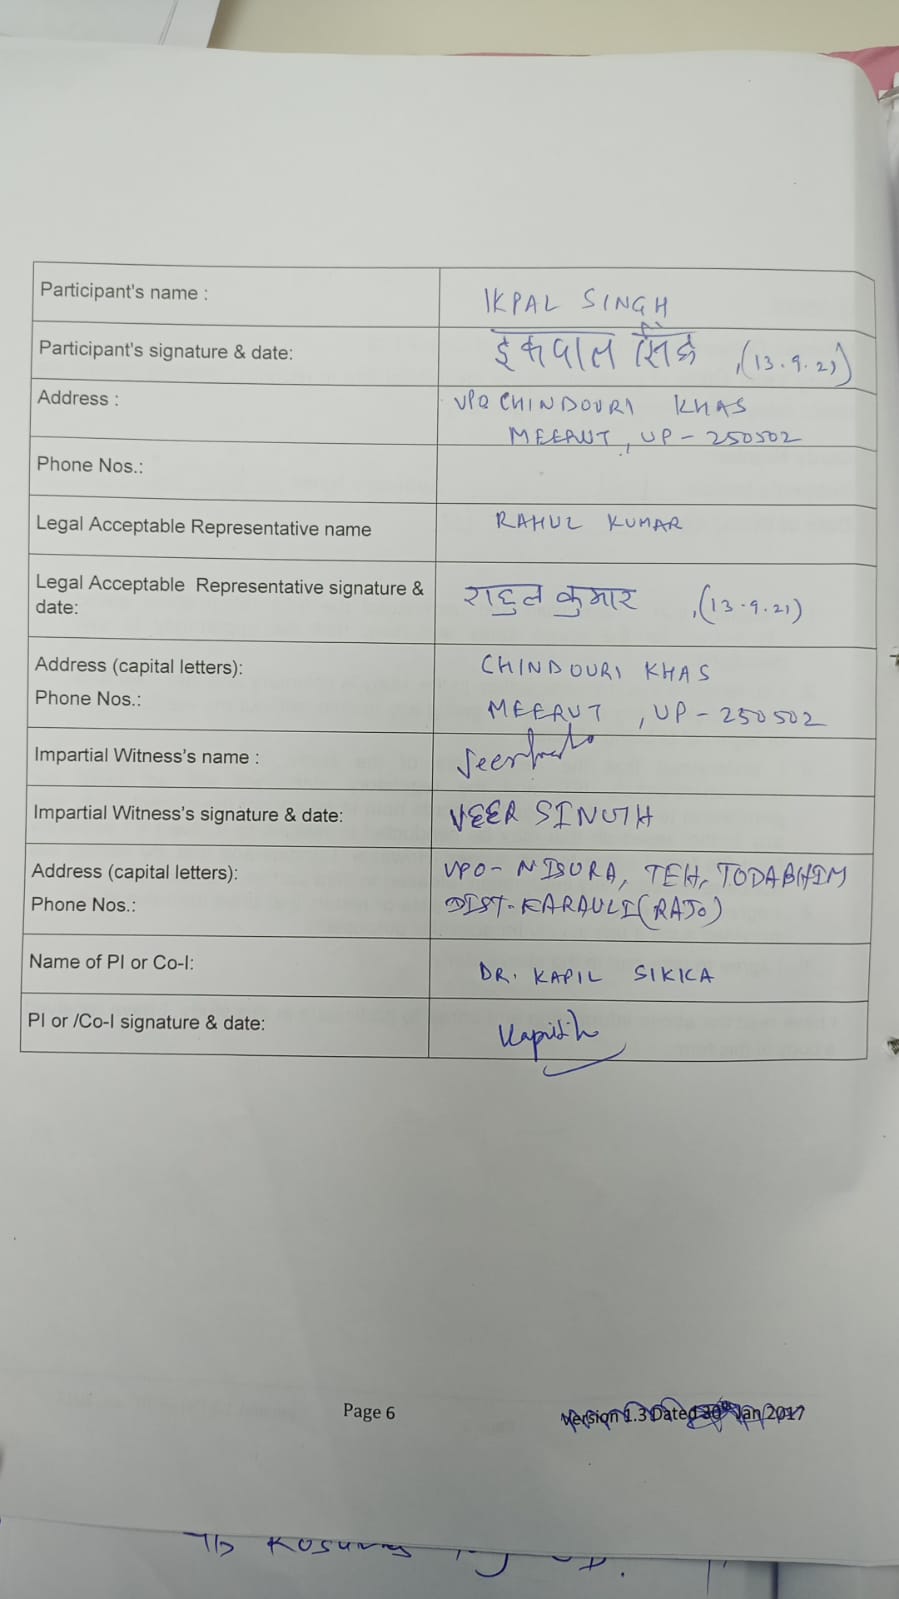 Participant's name :
IKPAL SINGH
Participant's signature & date:
इकपाल सिंह ,(13.9.21)
Address :
VPO CHINDOURI KHAS
MEERUT, UP-250502
Phone Nos.:
Legal Acceptable Representative name
RAHUL KUMAR
Legal Acceptable Representative signature &
date:
राहुल कुमार ,(13.9.21)
Address (capital letters):
CHINDOURI KHAS
Phone Nos.:
MEERUT , UP-250502
Impartial Witness's name :
Impartial Witness's signature & date:
VEER SINGH
Address (capital letters):
VPO- NISURA, TEH, TODABHIM
Phone Nos.:
DIST-KARAULI(RAJ.)
Name of PI or Co-I:
DR. KAPIL SIKICA
PI or /Co-I signature & date:
Page 6
Version 1.3 Dated 30th Jan 2017